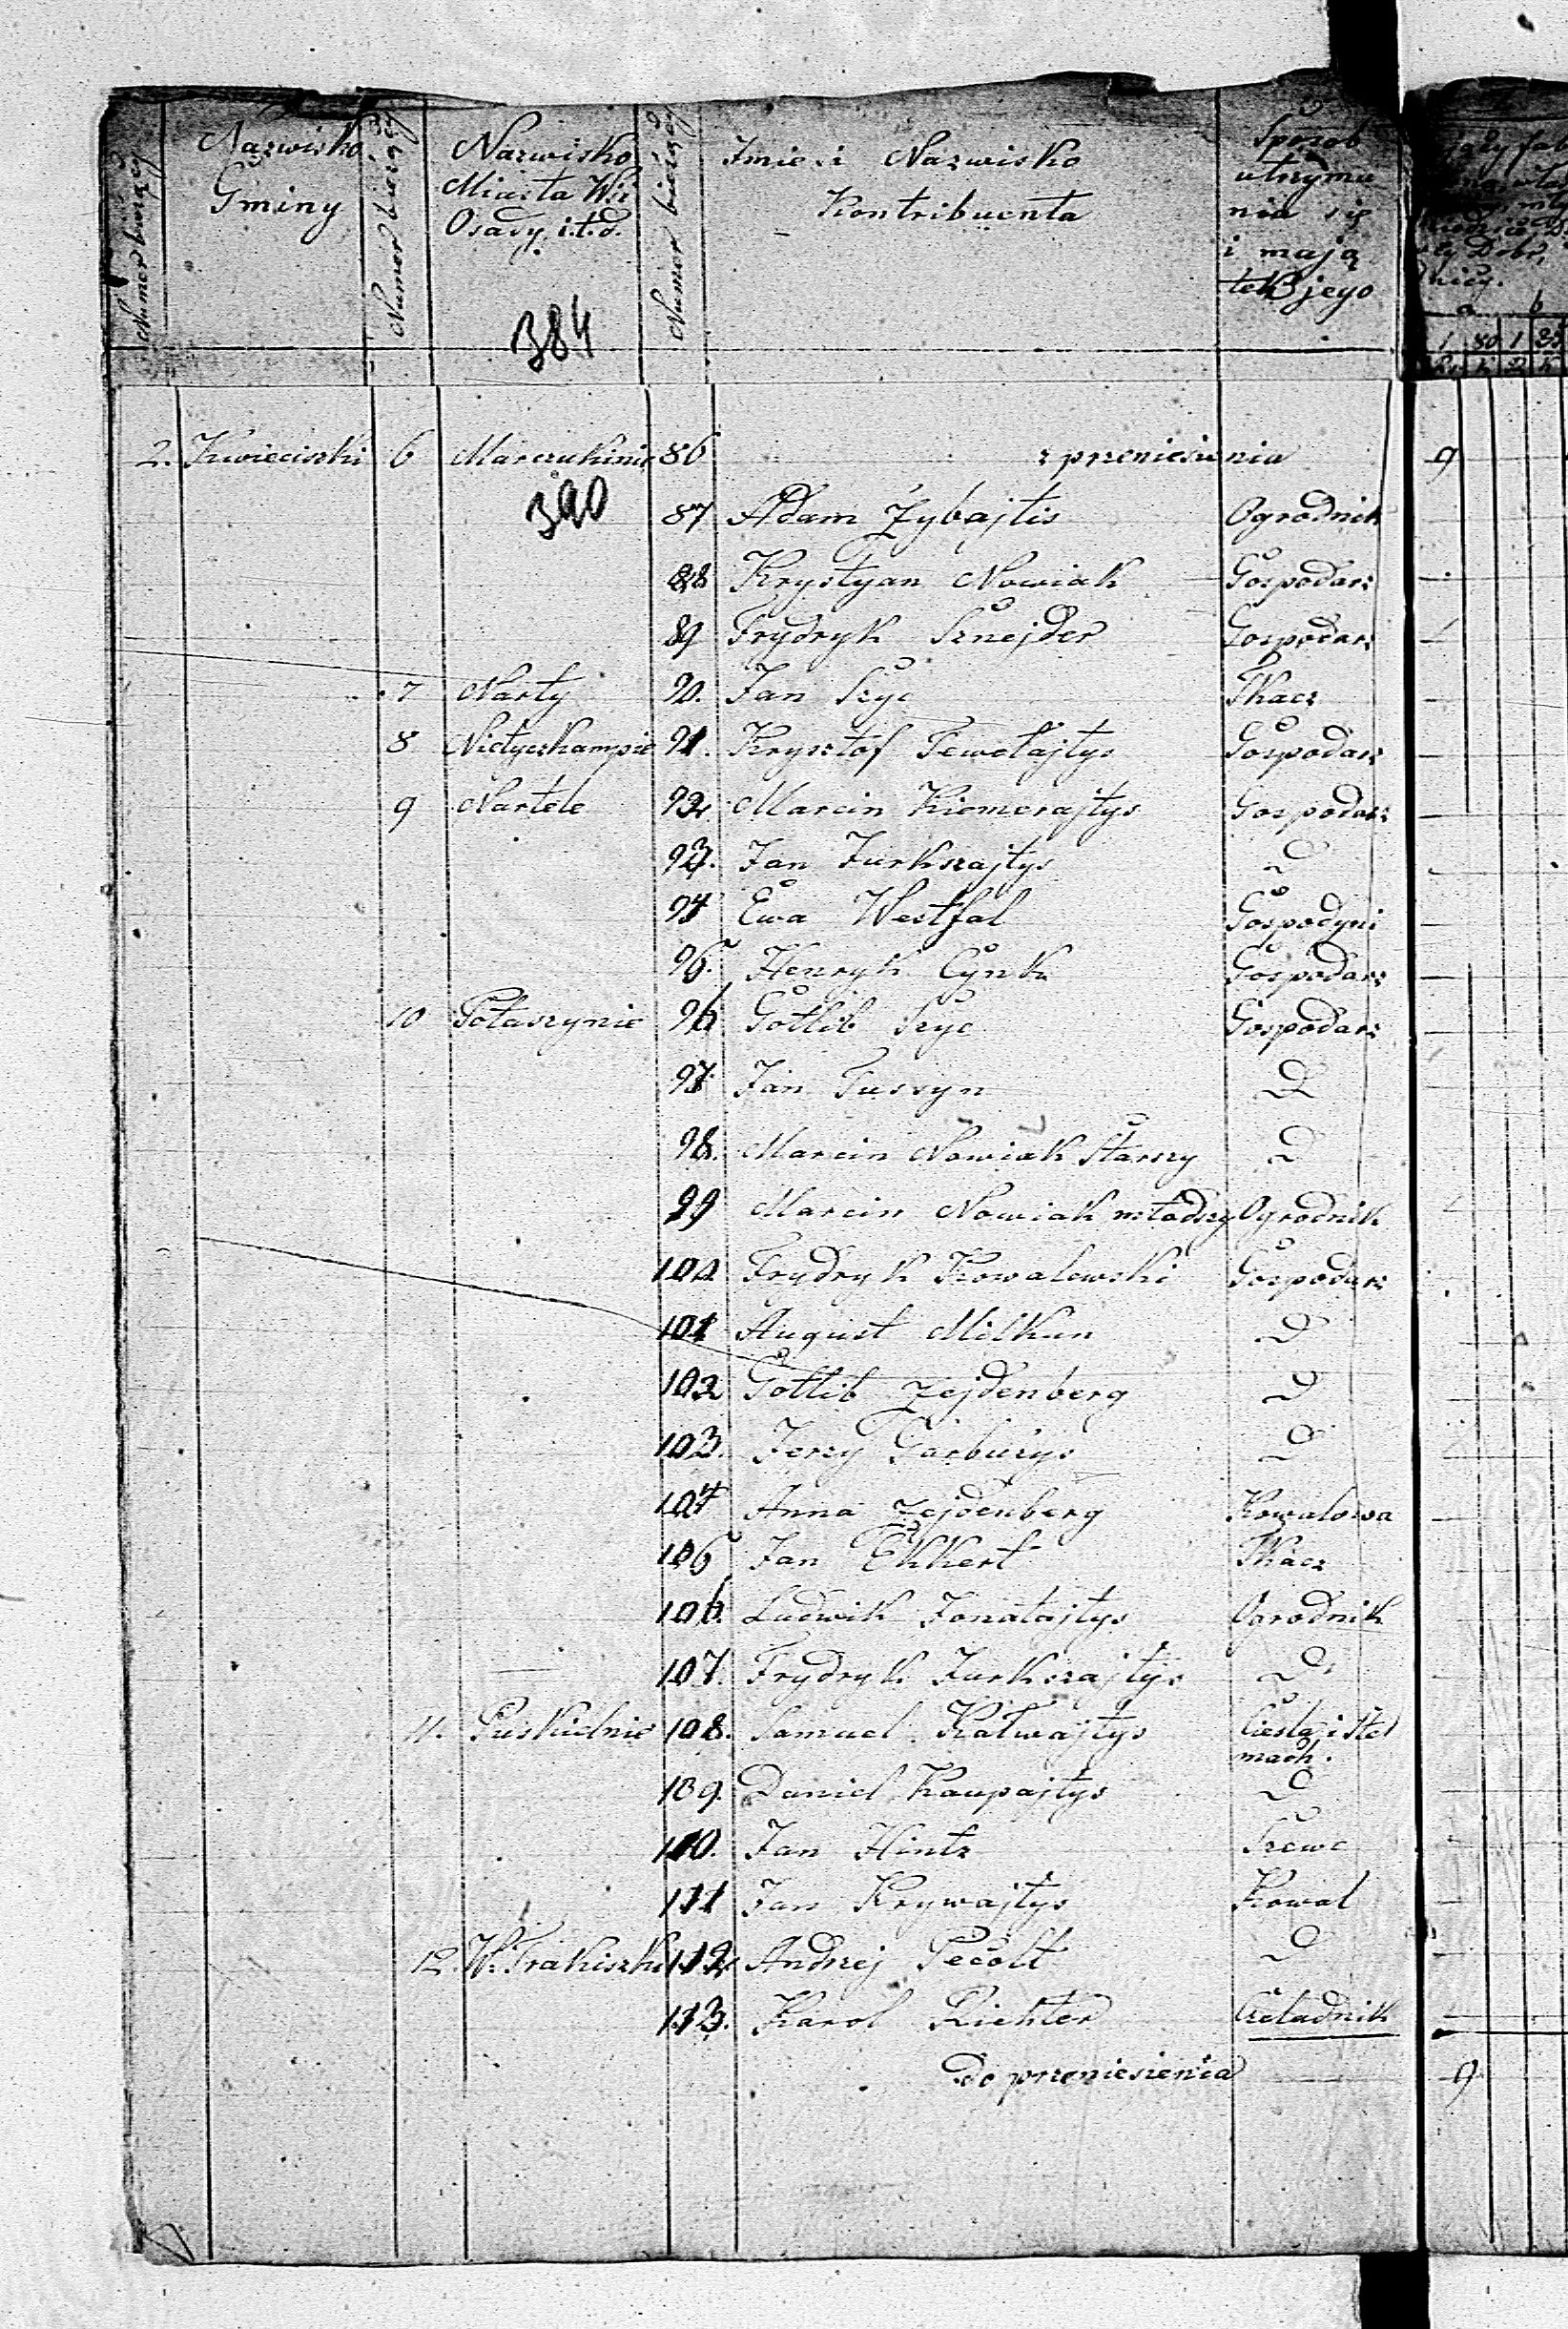 Numer bieżący
Nazwisko
Gminy
Numer bieżący
Nazwisko
Miasta Wsi
Osady i.t.d.
384
Numer bieżący
Imie i Nazwisko
Kontribuenta
Sposob
utrzyma
nia się
i mają
tek jego
a b
1 80 1 35
2. Kwieciszki 6 Marczukinie 86 z przeniesienia 9
390
87 Adam Zybajtis Ogrodnik
88 Krystyan Nowiak Gospodarz
89 Frydryk Sznejder Gospodarz
7 Narty 90. Jan Szyc Tkacz
8 Nietyczkampie 91. Krysztof Tewelajtys Gospodarz
9 Nartele 92. Marcin Kiemerajtys Gospodarz
93. Jan Jurkszajtys D
94 Ewa Westfal Gospodyni
95. Henryk Cynk Gospodarz
10 Potaszynie 96 Gotlib Szyc Gospodarz
97 Jan Tussyn D
98. Marcin Nowiak Starszy D
99 Marcin Nowiak młodszy Ogrodnik
100 Frydryk Kowalewski Gospodarz
101 August Milkun D
102 Gotlib Zejdenberg D
103. Jerzy Garburys D
104 Anna Zejdenberg Kowalowa
105 Jan Ekkert Tkacz
106. Ludwik Jonatajtys Ogrodnik
107. Frydryk Jurkszajtys D
11. Puskielnie 108. Samuel Kalwajtys Cieśla i Stel
mach.
109. Daniel Kaupajtys D
110. Jan Hintz Szewc
111 Jan Krywajtys Kowal
12. W. Trakiszki 112. Andrzej Pecolt D
113. Karol Richter Czeladnik
do przeniesienia 9